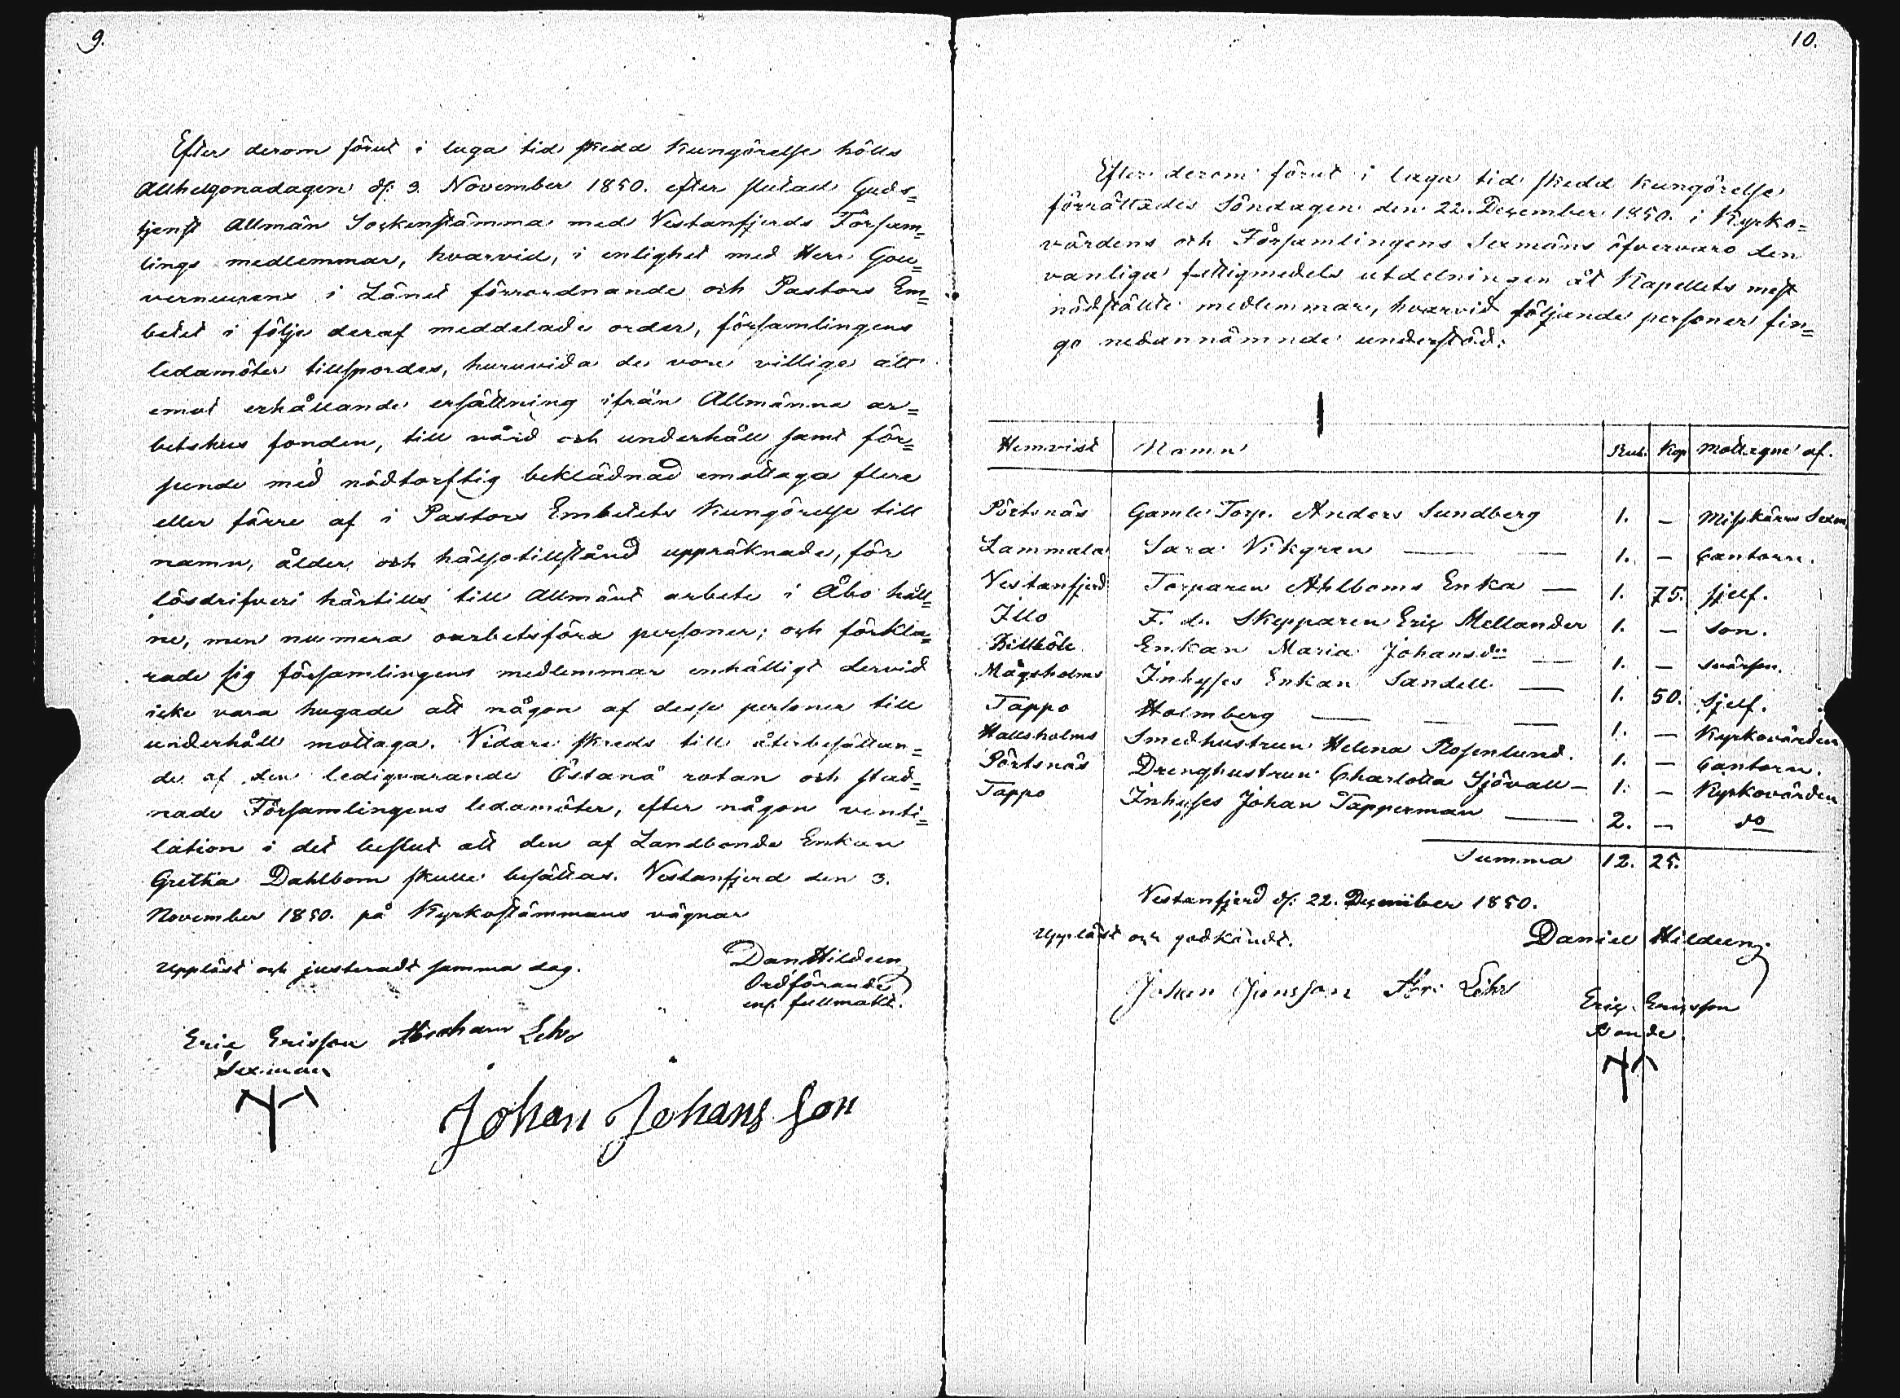 9.
Efter derom förut i laga tid skedd Kungörelse hölls
Allhelgonadagen d: 3. November 1850. efter slutad Guds=
tjenst Allmän Sockenstämma med Vestanfjerds Försam=
lings medlemmar, hvarvid, i enlighet med Herr Gou=
verneurens i Länet förrordnande och Pastors Em=
betet i följe deraf meddelade order, församlingens
ledamöter tillspordes, huruvida de vore villige att
emot erhållande ersättning ifrån Allmänna ar=
betshus fonden, till vård och underhåll samt för=
seende med nödtorftig beklädnad emottaga flere
eller färre af i Pastors Embetets Kungörelse till
namn, ålder och hälsotillstånd uppräknade, för
lösdrifveri härtills till Allmänt arbete i Åbo håll=
ne, men numera oarbetsföra personer; och förkla=
rade sig församlingens medlemmar enhälligt dervid
icke vara hugade att någon af desse personer till
underhåll mottaga. Vidare skreds till återbesättan=
de af den ledigvarande Östanå rotan och stad=
nade Församlingens ledamöter, efter någon venti=
lation i det beslut att den af Landbonde Enkan
Gretha Dahlbom skulle besättas. Vestanfjerd den 3.
November 1850. på Kyrkostämmans vägnar
Dan Hildeen
Ordförande
enl. fullmakt.
Uppläst och justeradt samma dag.
Eric Ericsson Abraham Lehr
Sexman
Johan Johansson
10.
Efter derom förut i laga tid skedd kungörelse
förrättades Söndagen den 22. December 1850. i Kyrko=
värdens och Församlingens Sexmäns öfvervaro den
vanliga fattigmedels utdelningen åt Kapellets mest
nödställte medlemmar, hvarvid följande personer fin=
go nedannämnde understöd:
Hemvist Namn Rub. Kop Mottagne af.
Pörtsnäs Gamle Torp. Anders Sundberg 1. — Misskärrs Sexm
Lammala Sara Vikgren — — 1. — Cantorn.
Vestanfjerd Torparen Ahlboms Enka — 1. 75. sjelf.
Illo F. d. Skepparen Eric Mellander 1. — Son.
Billböle Enkan Maria Johansdr — 1. — svärson.
Mågsholms Inhyses Enkan Sandell — 1. 50. Sjelf.
Tappo Holmberg — — — 1. — Kyrkovärden
Hallsholms Smedhustrun Helena Rosenlund. 1. — Cantorn.
Pörtsnäs Drenghustrun Charlotta Sjövall — 1. — Kyrkovärden
Tappo Inhyses Johan Tapperman — 2. — do
Summa 12. 25.
Vestanfjerd d: 22. December 1850.
Uppläst och godkändt.
Daniel Hildeen
Johan Jonsson Abr: Lehr
Eric Ericsson
Bonde